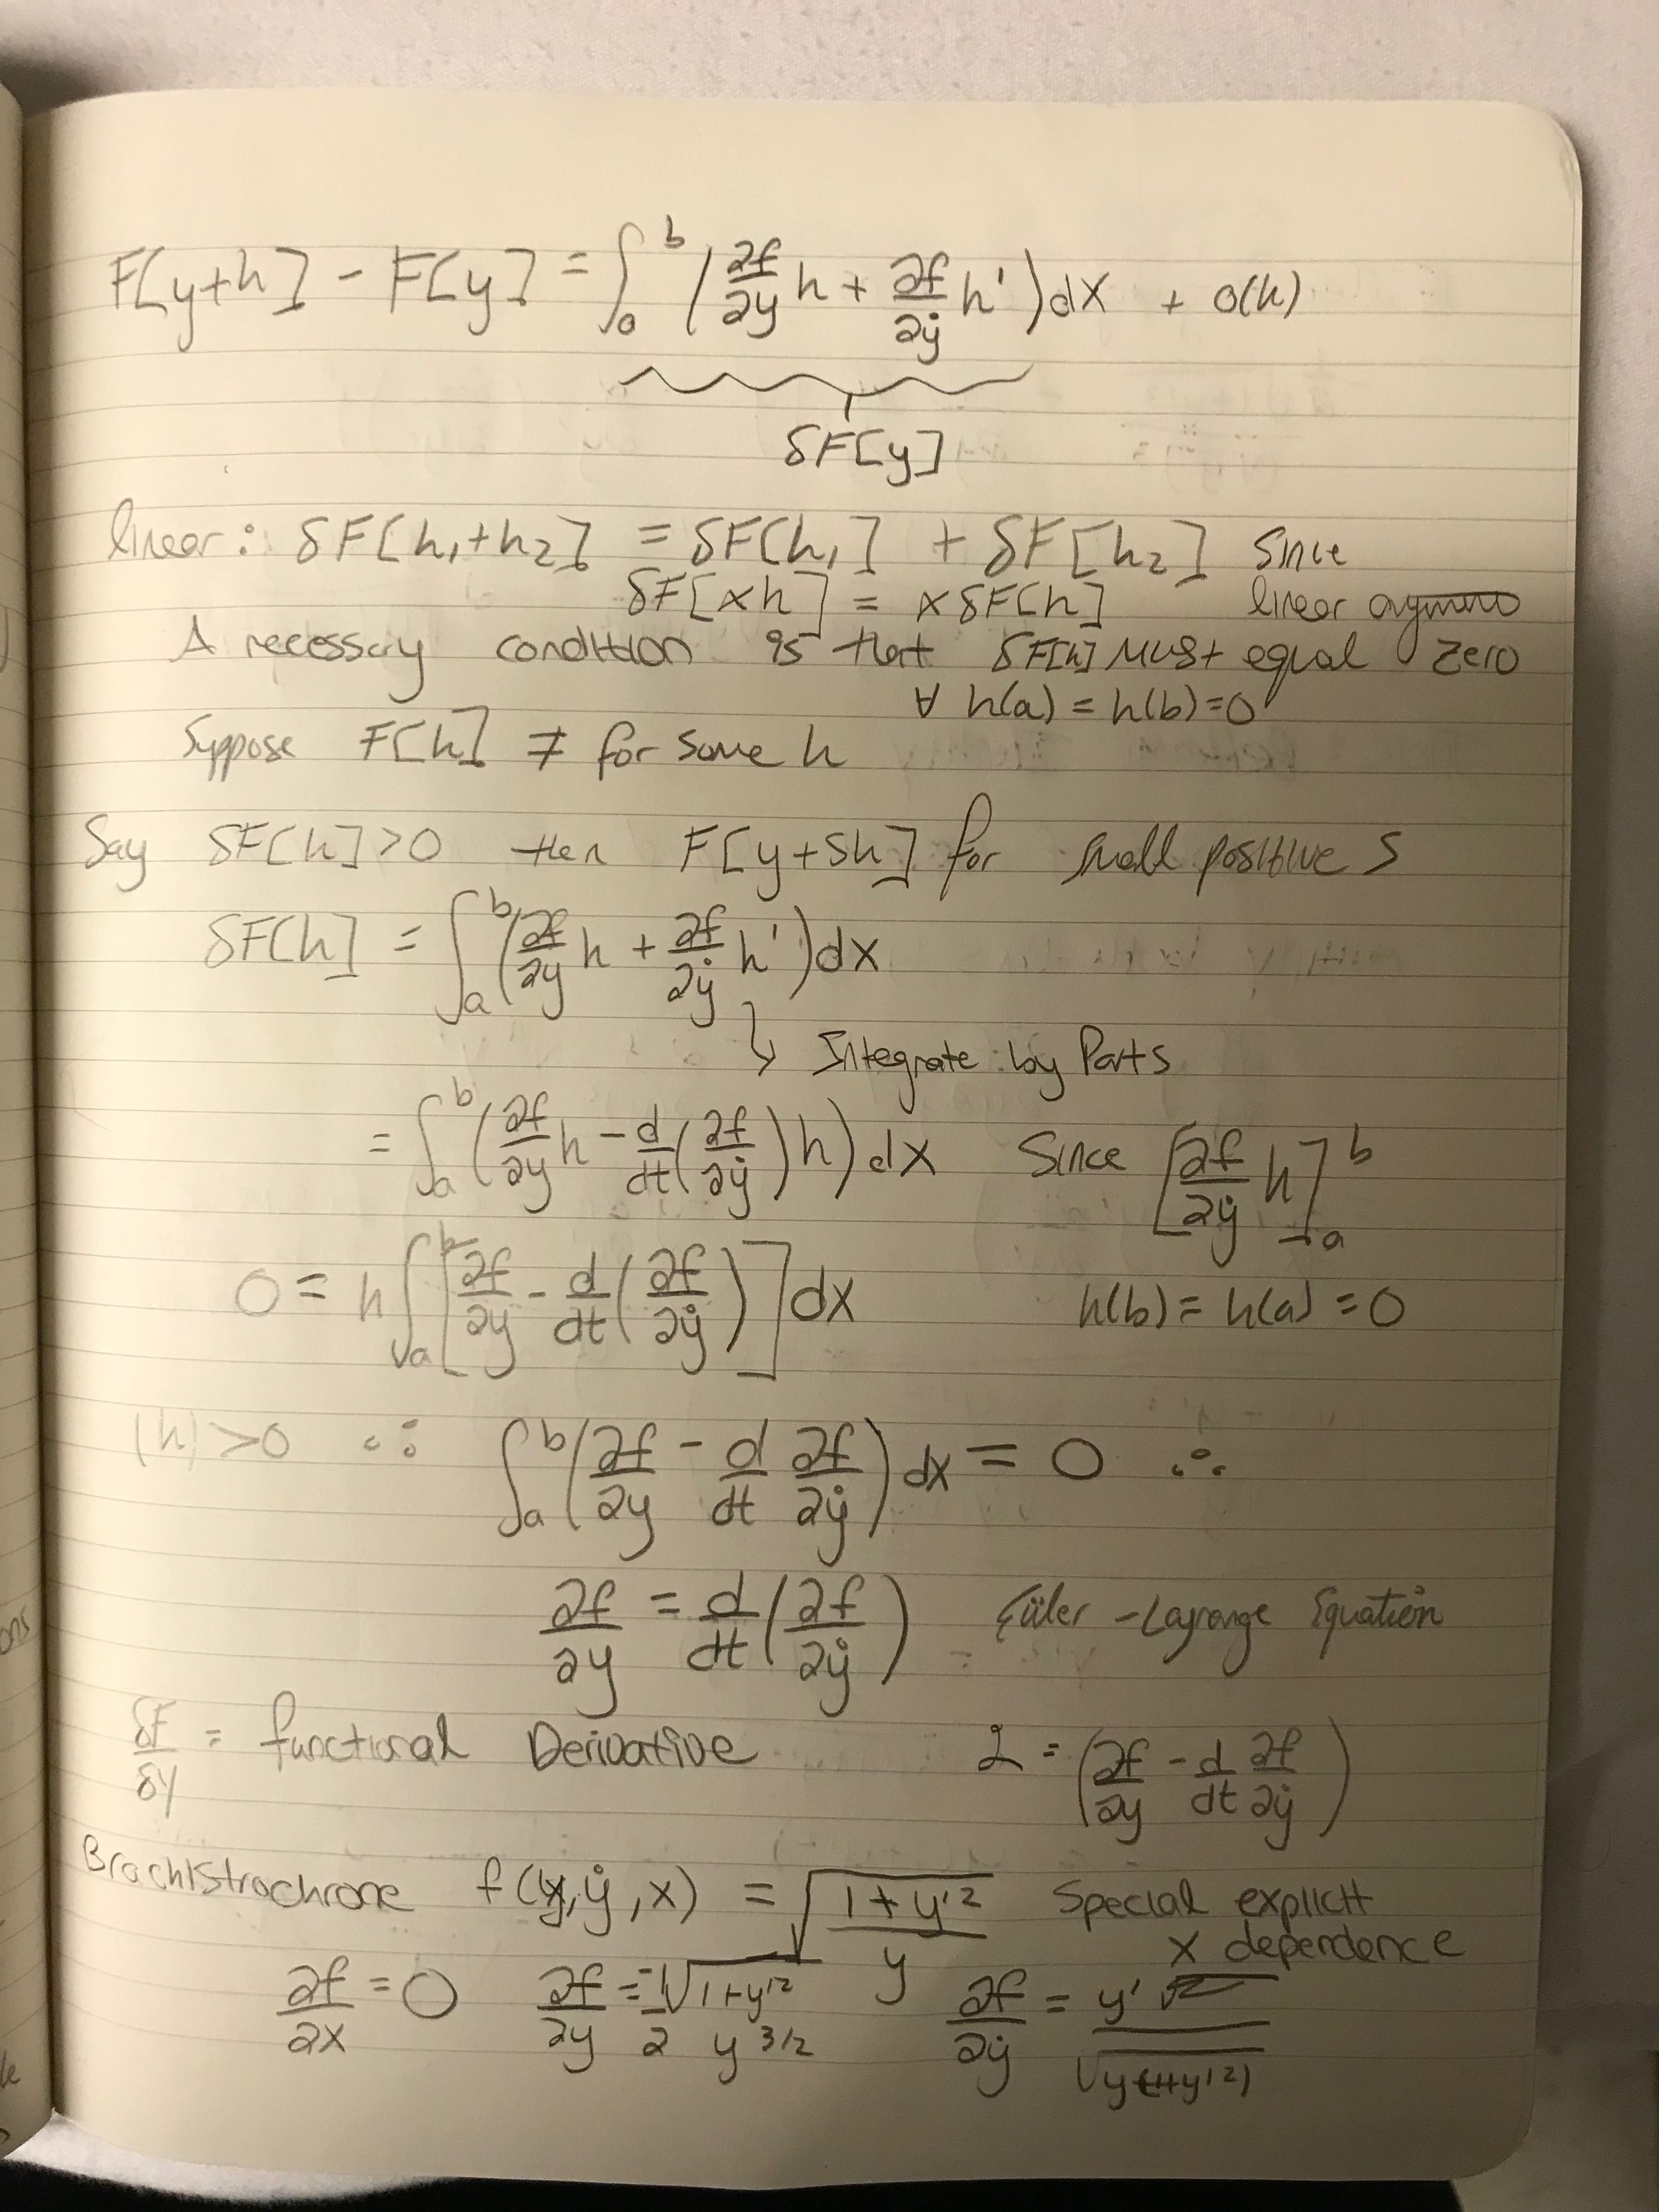 F[y+h] - F[y] = ∫_a^b (∂f/∂y h + ∂f/∂ẏ h') dx + o(h)
δF[y]
linear: δF[h₁+h₂] = δF[h₁] + δF[h₂] since
δF[xh] = xδF[h] linear
A necessary condition is that δF[h] must equal zero
∀ h(a) = h(b) = 0
Suppose F[h] ≠ for some h
Say δF[h] > 0 then F[y+sh] for small positive s
δF[h] = ∫_a^b (∂f/∂y h + ∂f/∂ẏ h') dx
↳ Integrate by Parts
= ∫_a^b (∂f/∂y h - d/dt (∂f/∂ẏ) h) dx Since [∂f/∂ẏ h]_a^b
0 = h ∫_a^b [∂f/∂y - d/dt (∂f/∂ẏ)] dx h(b) = h(a) = 0
(h) > 0 ∴ ∫_a^b (∂f/∂y - d/dt ∂f/∂ẏ) dx = 0 ∴
∂f/∂y = d/dt (∂f/∂ẏ) Euler - Lagrange Equation
δF/δy = functional Derivative L = (∂f/∂y - d/dt ∂f/∂ẏ)
Brachistrochrone f(y, ẏ, x) = √((1 + y'²)/y) Special explicit
x dependence
∂f/∂x = 0 ∂f/∂y = -1/2 √(1+y'²)/y^(3/2) ∂f/∂ẏ = y'/√(y(1+y'²))